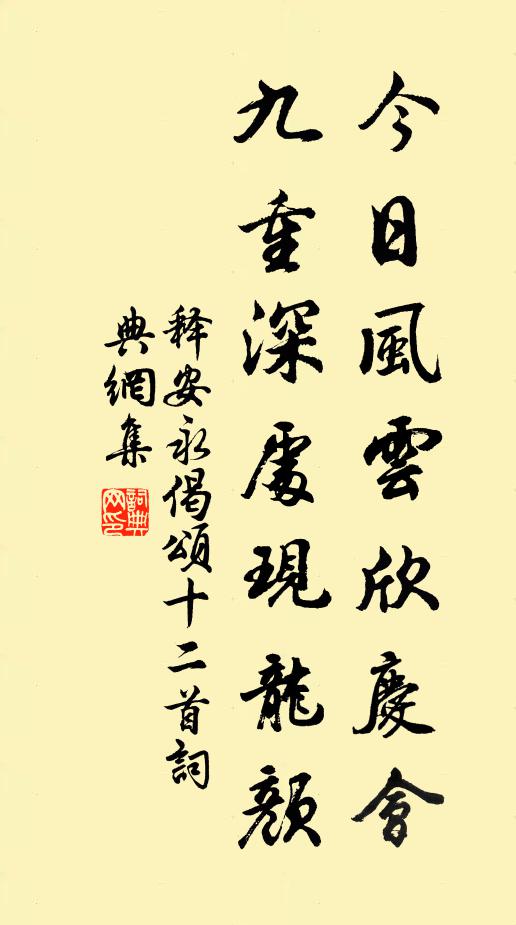 今日風雲欣慶會
九重深處現龍顏
释安永偈頌十二首詞
典網集
詞典
网印